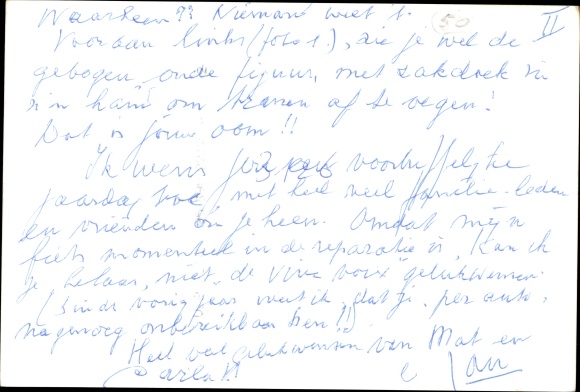 Waarheen?? Niemand weet 't. (50) II
Vooraan links (foto 1), zie je wel de
gebogen oude figuur, met zakdoek in
z'n hand om tranen af te vegen!
Dat is jouw oom!!
Ik wens voortreffelijke
jaardag toe, met heel veel familie-leden
en vrienden om je heen. Omdat mijn
fiets momenteel in de reparatie is, kan ik
je, helaas, niet "de vive voix" gelukwensen.
(Sinds vorig jaar weet ik, dat je, per auto,
nagenoeg onbereikbaar ben!!)
Heel veel gelukwensen van Mat en
Jan